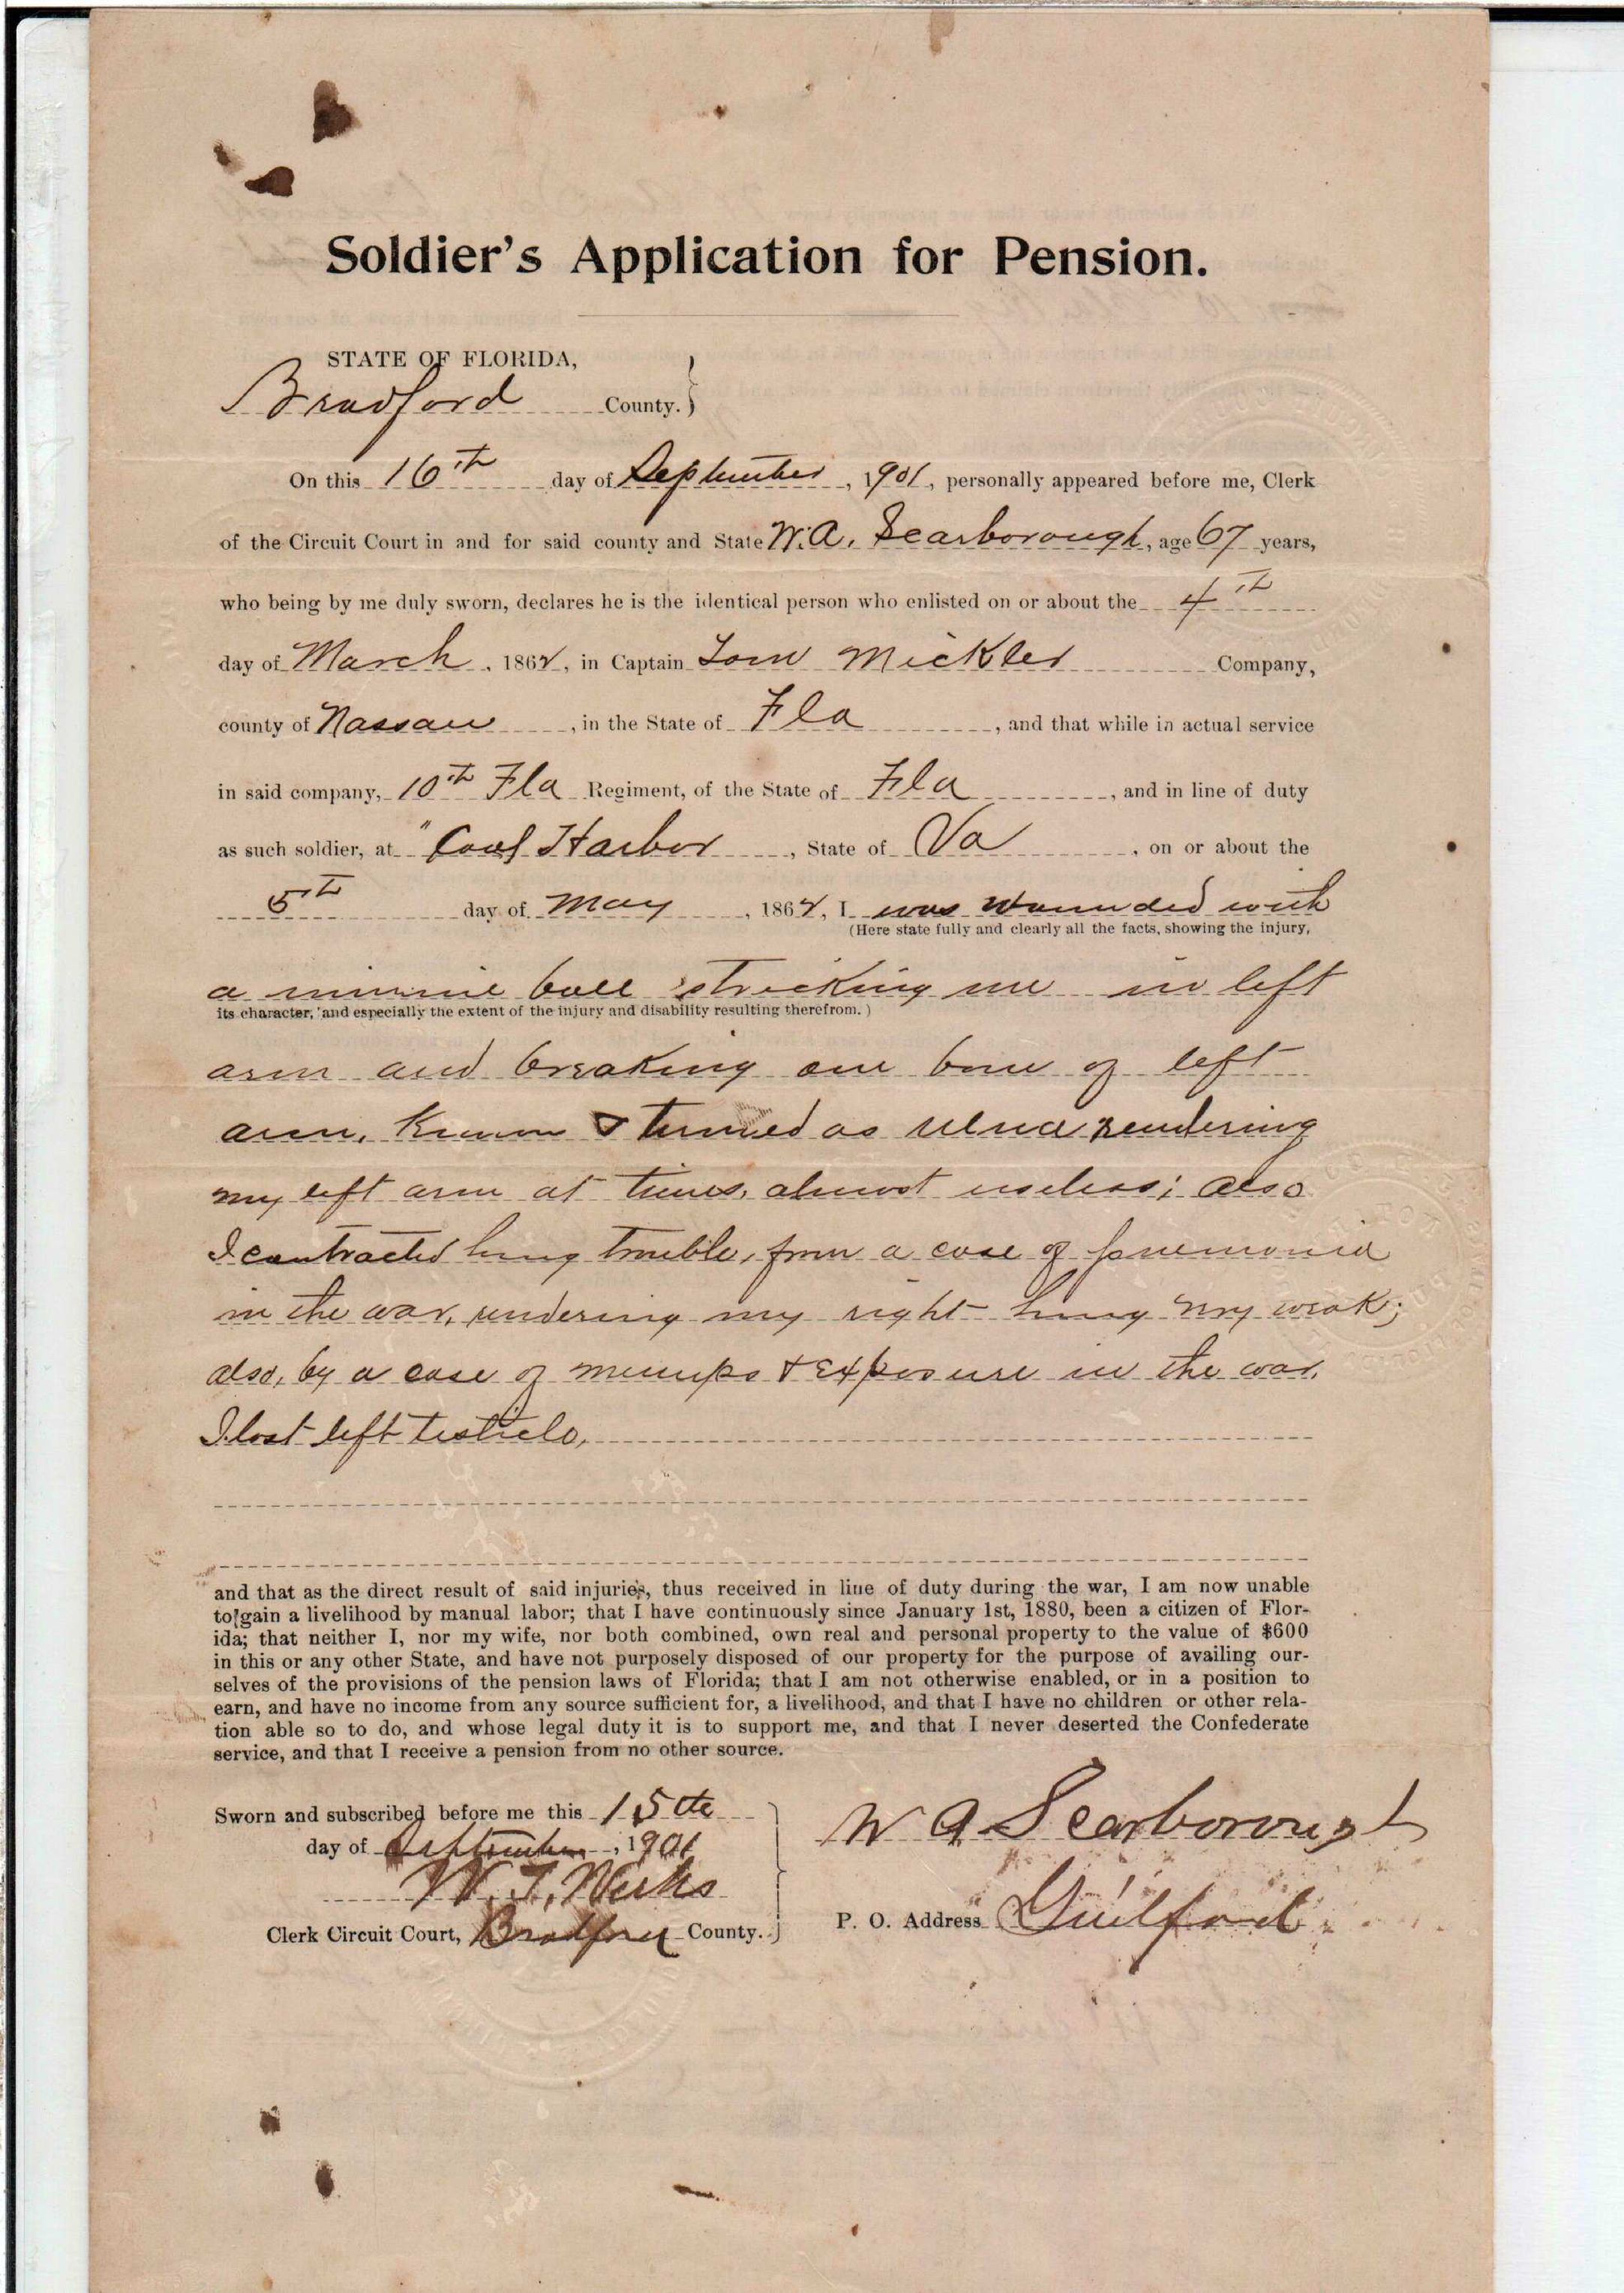 Soldier's Application for Pension.
STATE OF FLORIDA,
Bradford County. }
On this 16th day of September, 1901, personally appeared before me, Clerk
of the Circuit Court in and for said county and State W. A. Scarborough, age 67 years,
who being by me duly sworn, declares he is the identical person who enlisted on or about the 4th
day of March, 1862, in Captain Tom Mickler Company,
county of Nassau, in the State of Fla, and that while in actual service
in said company, 10th Fla Regiment, of the State of Fla, and in line of duty
as such soldier, at "Cool Harbor, State of Va, on or about the
5th day of May, 1864, I was wounded with
(Here state fully and clearly all the facts, showing the injury,
a minnie ball strecking me in left
its character, and especially the extent of the injury and disability resulting therefrom.)
arm and breaking one bone of left
arm, known & termed as ulna rendering
my left arm at times, almost useless; also
I contracted lung trouble, from a case of pnemonia
in the war, rendering my right lung very weak;
also, by a case of mumps & exposure in the war,
I lost left testicle,
and that as the direct result of said injuries, thus received in line of duty during the war, I am now unable
to gain a livelihood by manual labor; that I have continuously since January 1st, 1880, been a citizen of Flor-
ida; that neither I, nor my wife, nor both combined, own real and personal property to the value of $600
in this or any other State, and have not purposely disposed of our property for the purpose of availing our-
selves of the provisions of the pension laws of Florida; that I am not otherwise enabled, or in a position to
earn, and have no income from any source sufficient for, a livelihood, and that I have no children or other rela-
tion able so to do, and whose legal duty it is to support me, and that I never deserted the Confederate
service, and that I receive a pension from no other source.
Sworn and subscribed before me this 15th
day of September, 1901
W. T. Weeks
Clerk Circuit Court, Bradford County.
W A Scarborough
P. O. Address Guilford